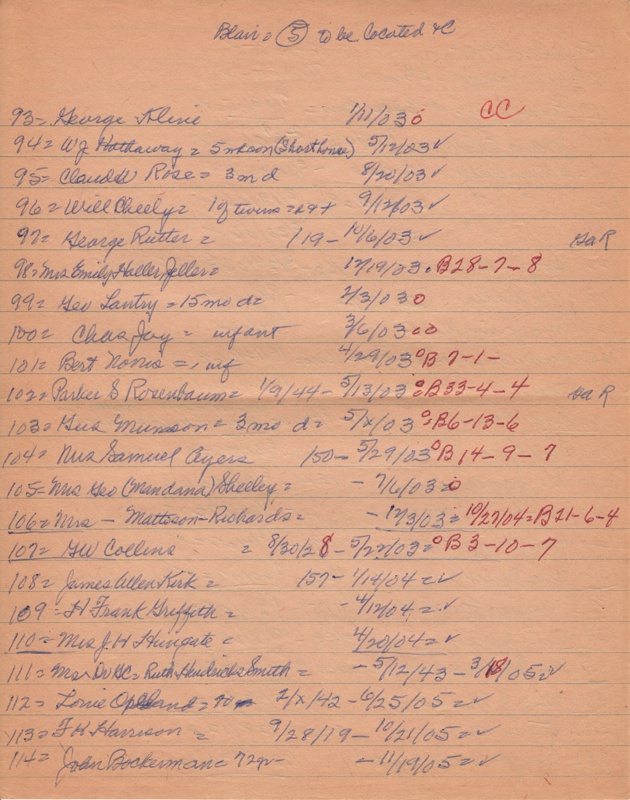 Blair = 5 to be located & C
93 = George Kline 1/11/03 o CC
94 = W J Hathaway = 5 mds on (Shorthouse) 5/12/03 ✓
95 = Claud W Rose = 3 m d 8/20/03 ✓
96 = Will Cheely = 1 of twins = 9/12/03 ✓
97 = George Rutter = 119 - 10/6/03 ✓ Ga R
98 = Mrs Emily Haller Jeller = 12/19/03 . B28-7-8
99 = Geo Lantry = 15 mo d = 2/3/03 o
100 = Chas Joy = infant 3/6/03 o o
101 = Bert Norris = , inf 4/29/03 o B 7-1-
102 = Parker S Rosenbaum = 1/9/44 - 5/13/03 o = B33-4-4 Ga R
103 = Gus Munson = 3 mo d = 5/x/03 o = B6-13-6
104 = Mrs Samuel Ayers 150 - 5/29/03 o B 14-9-7
105 = Mrs Geo (Mandana) Sheeley = - 7/6/03 = o
106 = Mrs - Matteson - Richards = - 12/3/03 = 10/27/04 = B21-6-4
107 = GW Collins = 8/30/28 - 5/27/03 = o B 3-10-7
108 = James Allen Kirk = 157 - 1/14/04 = ✓
109 = H Frank Griffeth = - 4/12/04 = . ✓
110 = Mrs J. H Hungate = 4/20/04 = ✓
111 = Mrs Dr BC = Ruth Hendricks Smith = - 5/12/43 - 3/18/05 = ✓
112 = Lonie = 2/x/42 - 6/25/05 = ✓
113 = F K Harrison = 9/28/19 - 10/21/05 = ✓
114 = John Bockerman = 72 yr - - 11/19/05 = ✓